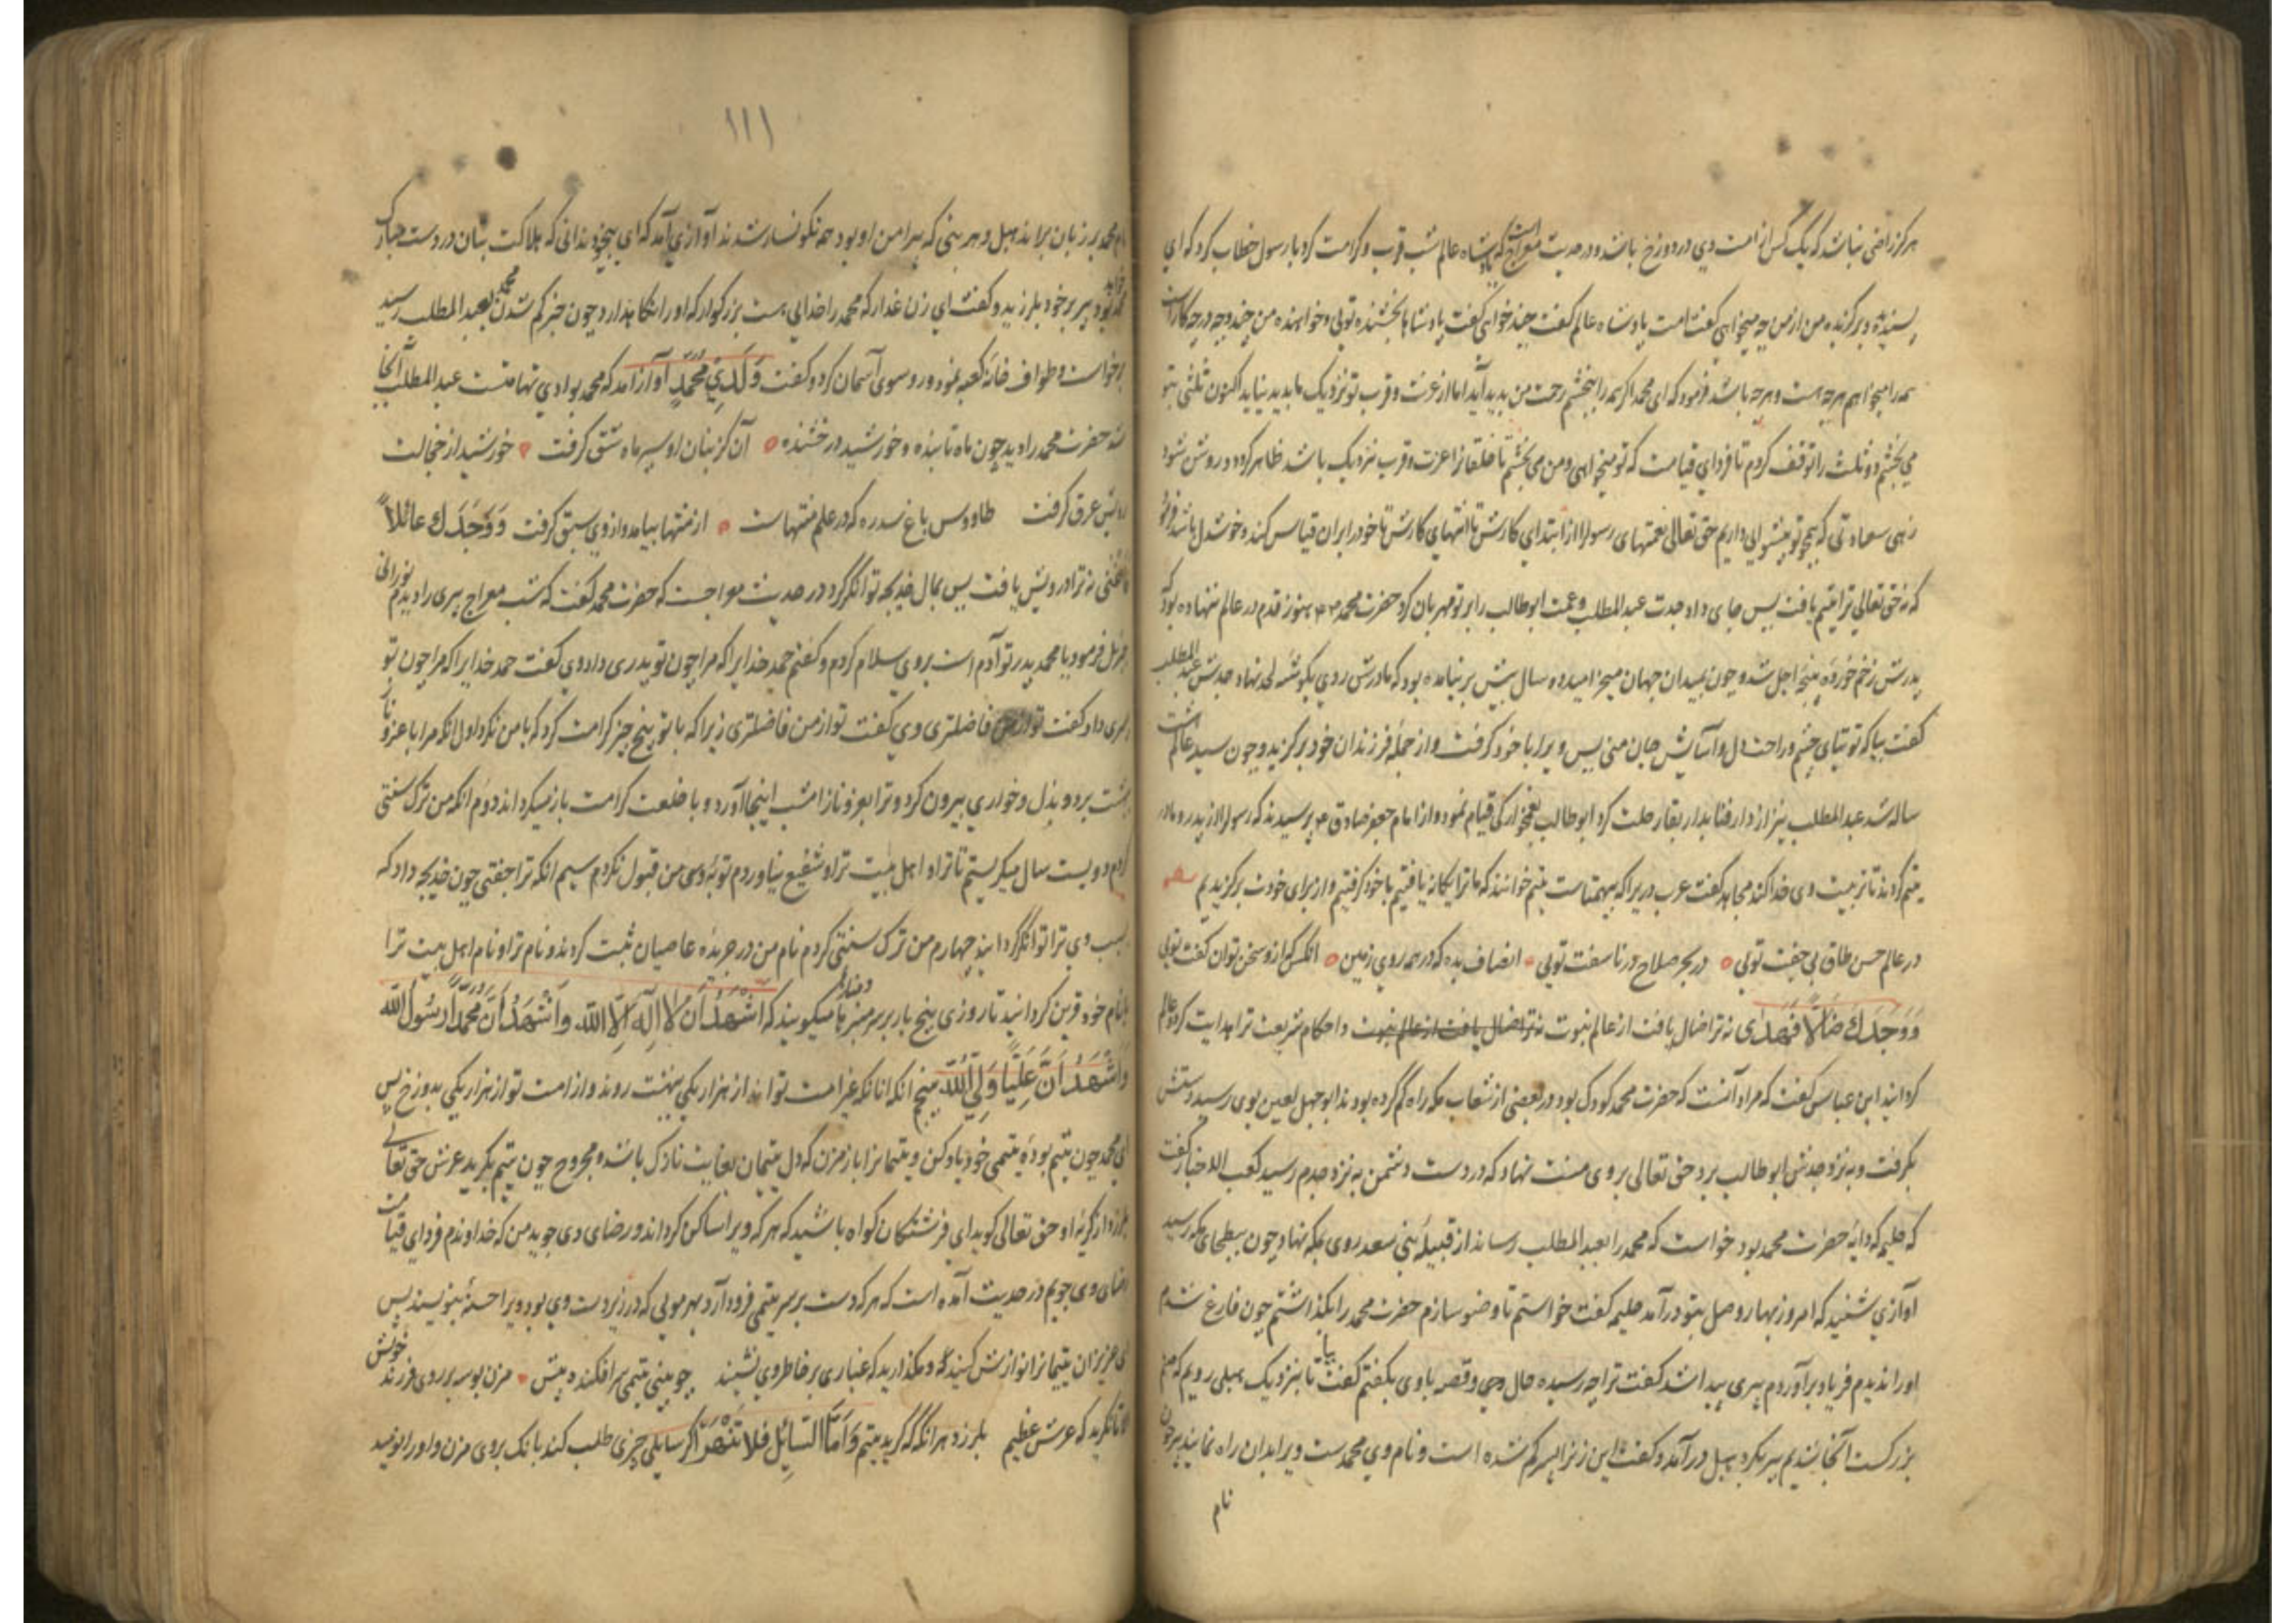 هرگز راضی نباشد که یک کس از امت وی در دوزخ باشد و در حدیث معراج است که پادشاه عالم شب قرب و کرامت کرد با رسول خطاب کرد که ای
پسندیده و برگزیده من از من چه میخواهی گفت امت پادشاه عالم گفت چند خواهی گفت پادشاها بخشنده توئی و خواهنده من چند و چه در چه کار است
همه را میخواهم هرچه هست و هرچه باشد فرمود که ای محمد اگر همه را ببخشم رحمت من پدید آید اما از عزت و قرب تو نزدیک ما پدید نیاید اکنون ثلثی بتو
می بخشم و دو ثلث را توقف کردم تا فردای قیامت که تو میخواهی و من می بخشم تا خلقانرا عزت و قرب نزدیک باشد ظاهر گردد و روشن شود
زهی سعادتی که همچو تو پیشوائی داریم حق تعالی نعمتهای رسولرا از ابتدای کارش تا انتهای کارش تا خود را بران قیاس کند و خوشدل باشد
که نه حق تعالی ترا یتیم یافت پس جای داد جدت عبد المطلب و عمت ابو طالب را بر تو مهربان کرد حضرت محمد هنوز قدم در عالم ننهاده بود که
پدرش زخم خورده پنجه اجل شد و چون بمیدان جهان میخرامید ده سال پیش بر نیامده بود که مادرش روی بگوشه لحد نهاد جدش عبد المطلب
گفت بیا که تو بینای چشم و راحت دل و آسایش جان منی پس ویرا با خود گرفت و از جمله فرزندان خود برگزید و چون سید عالم هشت
ساله شد عبد المطلب نیز از دار فنا بدار بقا رحلت کرد ابو طالب بغمخوارگی قیام نمود و از امام جعفر صادق ع پرسیدند که رسولرا از پدر و مادر
یتیم کردند تا تربیت وی خدا کند مجاهد گفت عرب در یرا که بیهمتاست یتیم خوانند که ما ترا یگانه یافتیم با خود گرفتیم و از برای خودت برگزیدیم
در عالم حسن طاق بی جفت توئی در بحر صلاح در ناسفت توئی انصاف بده که در همه روی زمین انکس که ازو سخن توان گفت توئی
وَوَجَدَكَ ضَالًّا فَهَدَى نه ترا ضال یافت از عالم نبوت نه ترا ضال یافت از عالم نبوت و احکام شریعت ترا هدایت کرد و عالم
گردانید ابن عباس گفت که مراد آنست که حضرت محمد کودک بود در بعضی از شعاب مکه راه گم کرده بود ابو جهل لعین بوی رسید دستش
بگرفت و به نزد جدش ابو طالب برد حق تعالی بر وی منت نهاد که در دست دشمن به نزد جدم رسید کعب الاحبار گفت
که حلیمه که دایه حضرت محمد بود خواست که محمد را بعبد المطلب رساند از قبیله بنی سعد روی بمکه نهاد چون ببطحای مکه رسید
آوازی شنید که امروز بهار وصل بتو درآمد حلیمه گفت خواستم تا وضو سازم حضرت محمد را بگذاشتم چون فارغ شدم
او را ندیدم فریاد برآوردم پیری پیدا شد گفت ترا چه رسیده حال وی و قصه با وی بگفتم گفت بیا تا بنزدیک هبل رویم که صنم
بزرگست آنجا شدیم پیر بگرد هبل درآمد و گفت این زنرا پسر گم شده است و نام وی محمد ست ویرا بدان راه نمایید پیر چون
نام
۱۱۱
نام محمد بر زبان براند هبل و هر بتی که پیرامن او بود همه نگونسار شدند آوازی آمد که ای پیر چه میدانی که هلاکت بتان در دست مبارک
محمد خواهد بود پیر بر خود بلرزید و گفت ای زن غم مدار که محمد را خدایی هست بزرگوار که او را نگاه دارد چون خبر گم شدن محمد بعبد المطلب رسید
برخواست و طواف خانه کعبه نمود و روی سوی آسمان کرد و گفت وَلَدِي مُحَمَّدٍ آواز آمد که محمد بوادی تهامتست عبد المطلب آنجا
شد حضرت محمد را دید چون ماه تابنده و خورشید درخشنده آن کز بنان او سپر ماه شق گرفت خورشید از خجالت
رویش عرق گرفت طاووس باغ سدره که در علم منتهاست از منتها بیامد و از وی سبق گرفت وَوَجَدَكَ عائِلاً
فاغنی نه ترا درویش یافت پس بمال خدیجه توانگر کرد در حدیث معراجست که حضرت محمد گفت که شب معراج پیری را دیدم نورانی
جبرئیل فرمود یا محمد پدر تو آدم است بر وی سلام کردم و گفتم حمد خدایرا که مرا چون تو پدری داد وی گفت حمد خدایرا که مرا چون تو
پسری داد گفت تو از من فاضلتری وی گفت تو از من فاضلتری زیرا که با تو پنج چیز کرامت کرد که با من نکرد اول انکه مرا با عز و ناز
بهشت برد و بذل و خواری بیرون کرد و ترا بعز و ناز امشب اینجا آورد و با خلعت کرامت باز میگرداند دوم انکه من ترک سنتی
کردم دویست سال میگریستم تا ترا و اهل بیت ترا شفیع نیاوردم توبه من قبول نکرد سیم انکه ترا جفتی چون خدیجه داد که
بسبب وی ترا توانگر گردانید چهارم من ترک سنتی کردم نام من در جریده عاصیان ثبت کردند و نام ترا و نام اهل بیت ترا
با نام خود قرین گردانید تا روزی پنج بار بر سر منبرها و منارها میگویند که اَشْهَدُ اَنْ لا اِلَهَ اِلَّا اللَّه وَاَشْهَدُ اَنَّ مُحَمَّداً رَسُولُ اللَّه
وَاَشْهَدُ اَنَّ عَلِيًّا وَلِيُّ اللَّه پنجم انکه انانکه غیر امت تو اند از هزار یکی ببهشت روند و از امت تو از هزار یکی بدوزخ پس
ای محمد چون یتیم بوده یتیمی خود یاد کن و یتیمانرا باز مزن که دل یتیمان بغایت نازک باشد و مجروح چون یتیم بگرید عرش حق تعالی
بلرزد از گریه او حق تعالی گوید ای فرشتگان گواه باشید که هر که ویرا ساکن گرداند و رضای وی جوید من که خداوندم فردای قیامت
رضای وی جویم در حدیث آمده است که هر که دست بر سر یتیمی فرود آرد بهر مویی که در زیر دست وی بود ویرا حسنه بنویسند پس
ای عزیزان یتیمانرا نوازش کنید و مگذارید که غباری بر خاطر وی نشیند چو بینی یتیمی سر افکنده پیش مزن بوسه بر روی فرزند خویش
الا تا نگرید که عرش عظیم بلرزد هر انگه که گرید یتیم وَاَمَّا السَّائِلَ فَلا تَنْهَرْ اگر سایلی چیزی طلب کند بانک بروی مزن و او را نومید